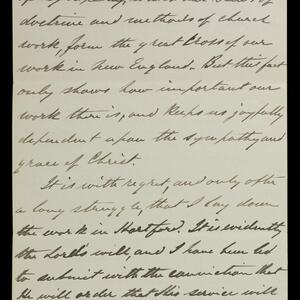 doctrine and methods of church
work, form the great Cross of our
work in New England. But this fact
only shows how important our
work there is, and keeps us joyfully
dependent upon the sympathy and
grace of Christ.
It is with regret, and only after
a long struggle, that I lay down
the work in Hartford. It is evidently
the Lord's will, and I have been led
to submit with the conviction that
He will order that this service will